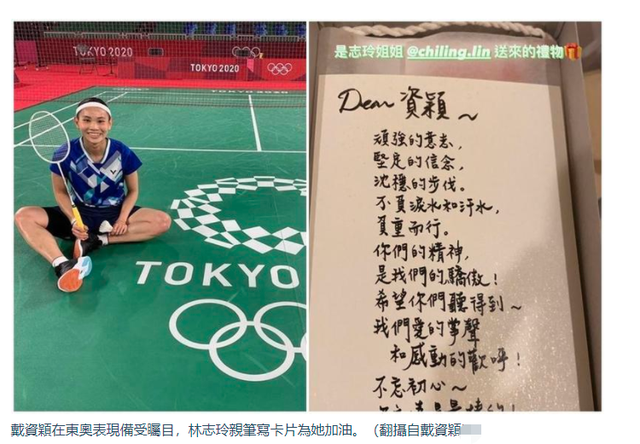 TOKYO 2020
TOKYO 2020
TOKYO
是志玲姐姐 @chiling.lin 送來的禮物🎁
Dear 資穎～
頑強的意志,
堅定的信念,
沈穩的步伐。
不負淚水和汗水,
負重而行。
你們的精神,
是我們的驕傲!
希望你們聽得到～
我們愛的掌聲
和感動的歡呼!
不忘初心～
戴資穎在東奧表現備受矚目，林志玲親筆寫卡片為她加油。（翻攝自戴資穎